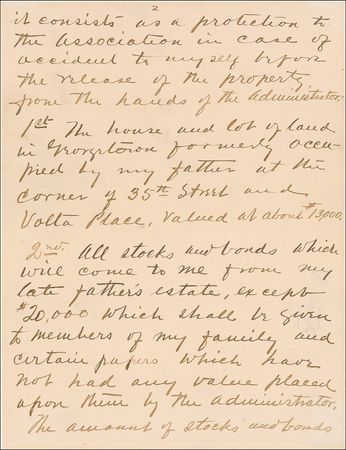 2
it consists as a protection to
the Association in case of
accident to myself before
the release of the property
from the hands of the Administrator:
1st The house and lot of land
in Georgetown formerly occu-
pied by my father at the
corner of 35th Street and
Volta Place, valued at about $13000.
2nd All stocks and bonds which
will come to me from my
late father's estate, except
$20,000 which shall be given
to members of my family and
certain papers which have
not had any value placed
upon them by the administrator.
The amount of stocks and bonds